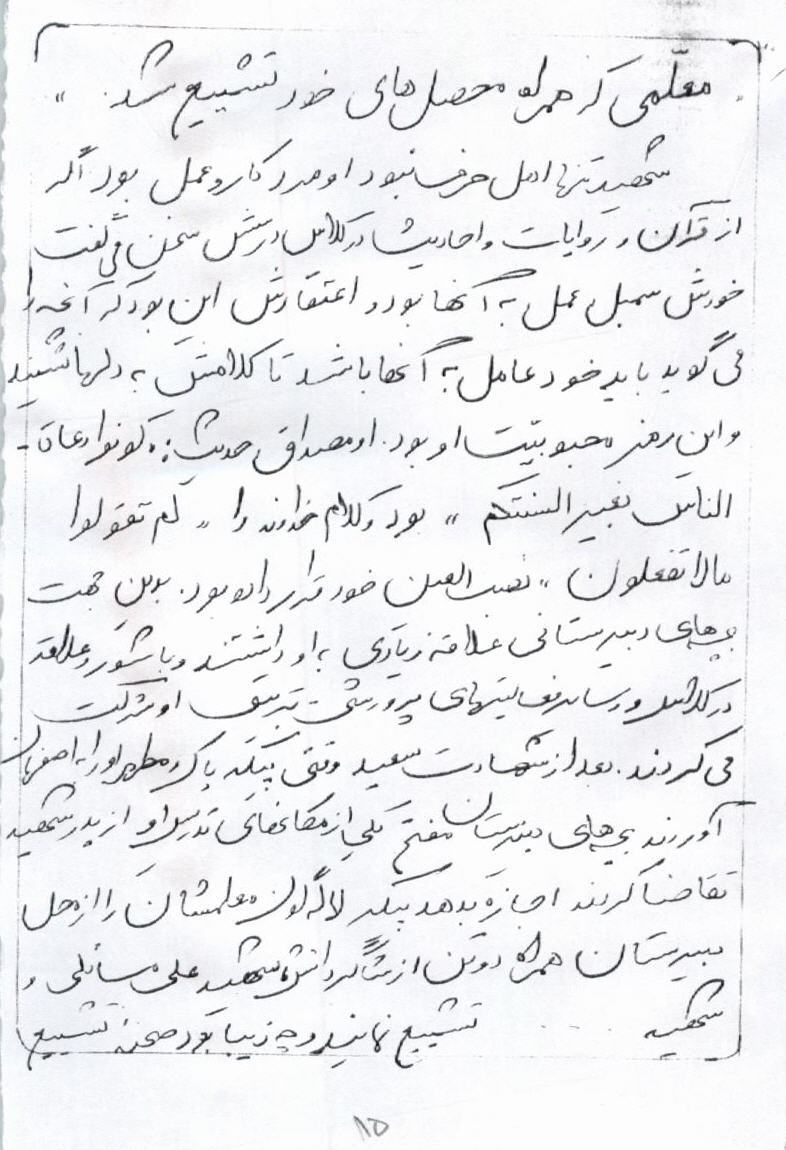 معلّمی که همراه محصل‌های خود تشییع شد. "
شهید تنها اهل حرف نبود او مرد کار و عمل بود اگر
از قرآن و روایات و احادیث در کلاس درسش سخن می گفت
خودش سمبل عمل به آنها بود و اعتقادش این بود که آنچه را
می گوید باید خود عامل به آنها باشد تا کلامش به دلها نشیند
و این رمز محبوبیّت او بود. او مصداق حدیث: «کونوا دعاة -
الناس بغیر السنتکم» بود و کلام خداوند را «لم تقولوا
مالا تفعلون» نصب العین خود قرار داده بود. بدین جهت
بچه‌های دبیرستانی علاقه زیادی به او داشتند و با شور و علاقه
در کلاس و فعالیتهای پرورشی او شرکت
می کردند. بعد از شهادت سعید وقتی پیکر پاک و مطهر او را به اصفهان
آوردند بچه‌های دبیرستان مفتح یکی از مکانهای تدریس او از پدر شهید
تقاضا کردند اجازه بدهد پیکر لاله گون معلمشان را از محل
دبیرستان همراه دو تن از شاگردانش شهید علی مسائلی و
شهید . . . . . تشییع نمایند و چه زیبا بود صحنه تشییع
۸۵